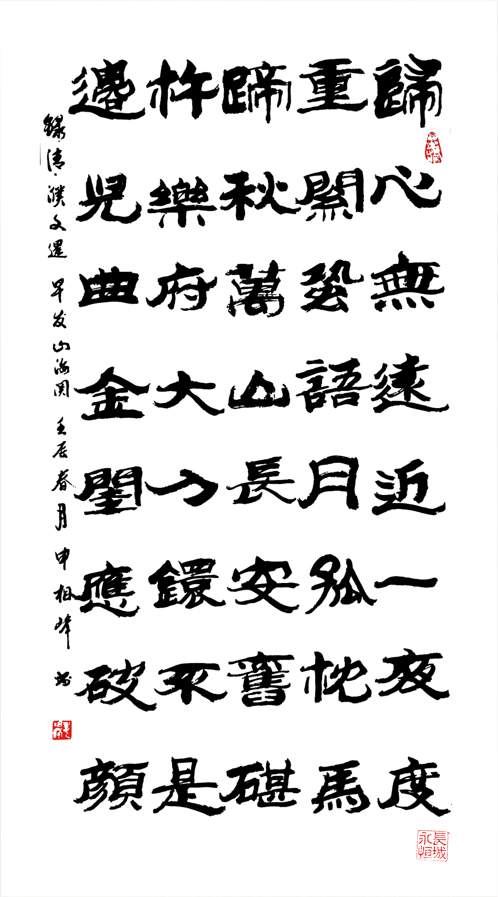 歸心無遠近一夜度
重關蛩語月孤枕馬
蹄秋萬山長安舊碪
杵樂府大刀鐶不是
邊兒曲金閨應破顏
録清濮文暹 早发山海関 壬辰春月 申相峰 书
長城永恒